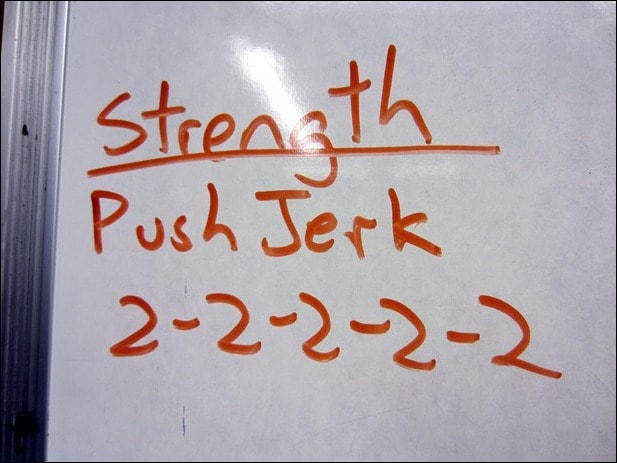 Strength
Push Jerk
2-2-2-2-2